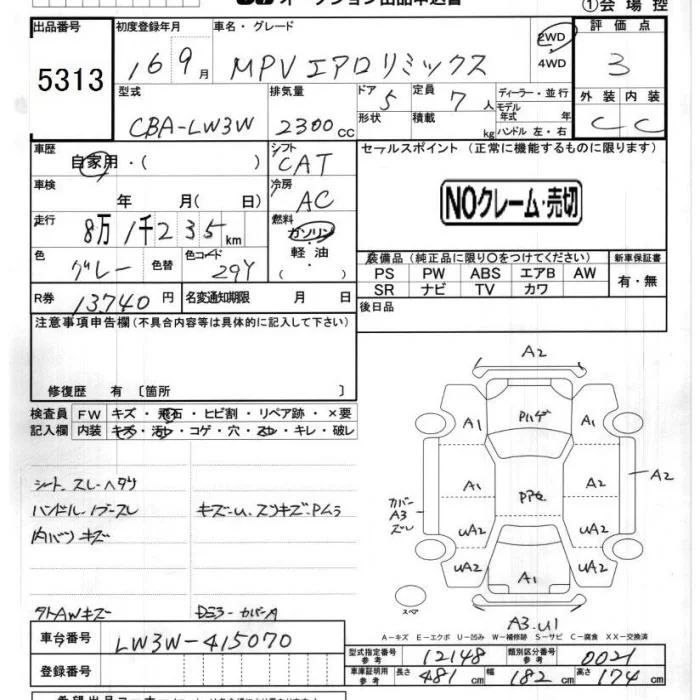 オークション出品申込書
①会場控
出品番号 5313
初度登録年月 16 9月
車名・グレード MPVエアロリミックス
2WD
4WD
評価点 3
型式 CBA-LW3W
排気量 2300cc
ドア 5
形状
定員 7人
積載 kg
ディーラー・並行
モデル年式 年
ハンドル 左・右
外装 内装
C C
車歴 自家用・( )
シフト CAT
セールスポイント (正常に機能するものに限ります)
車検 年 月( 日)
冷房 AC
NOクレーム・売切
走行 8万1千235km
燃料 ガソリン
軽・油
( )
色 グレー 色替
色コード 29Y
装備品 (純正品に限り○をつけてください)
新車保証書
PS PW ABS エアB AW
有・無
SR ナビ TV カワ
R券 13,740円
名変通知期限 月 日
後日品
注意事項申告欄 (不具合内容等は具体的に記入して下さい)
修復歴 有 〔箇所 〕
検査員記入欄
FW キズ・飛石・ヒビ割・リペア跡・×要
内装 キズ・汚れ・コゲ・穴・スレ・キレ・破レ
シート、スレ・ヘタリ
ハンドル・ノブースレ
内バリキズ
キズ-U、スリキズ、Pムラ
タトAWキズー
A2
A1 Pハゲ A1
A2 A2 A2
カバー
A3
ズレ
UA2 UA2
UA2 A1 UA2
スペア
A3.U1
A-キズ E-エクボ U-凹み W-補修跡 S-サビ C-腐食 XX-交換済
車台番号 LW3W-415070
型式指定番号 参考 12148
類別区分番号 参考 0021
登録番号
車庫証明用 参考 長さ 481cm 幅 182cm 高さ 174cm